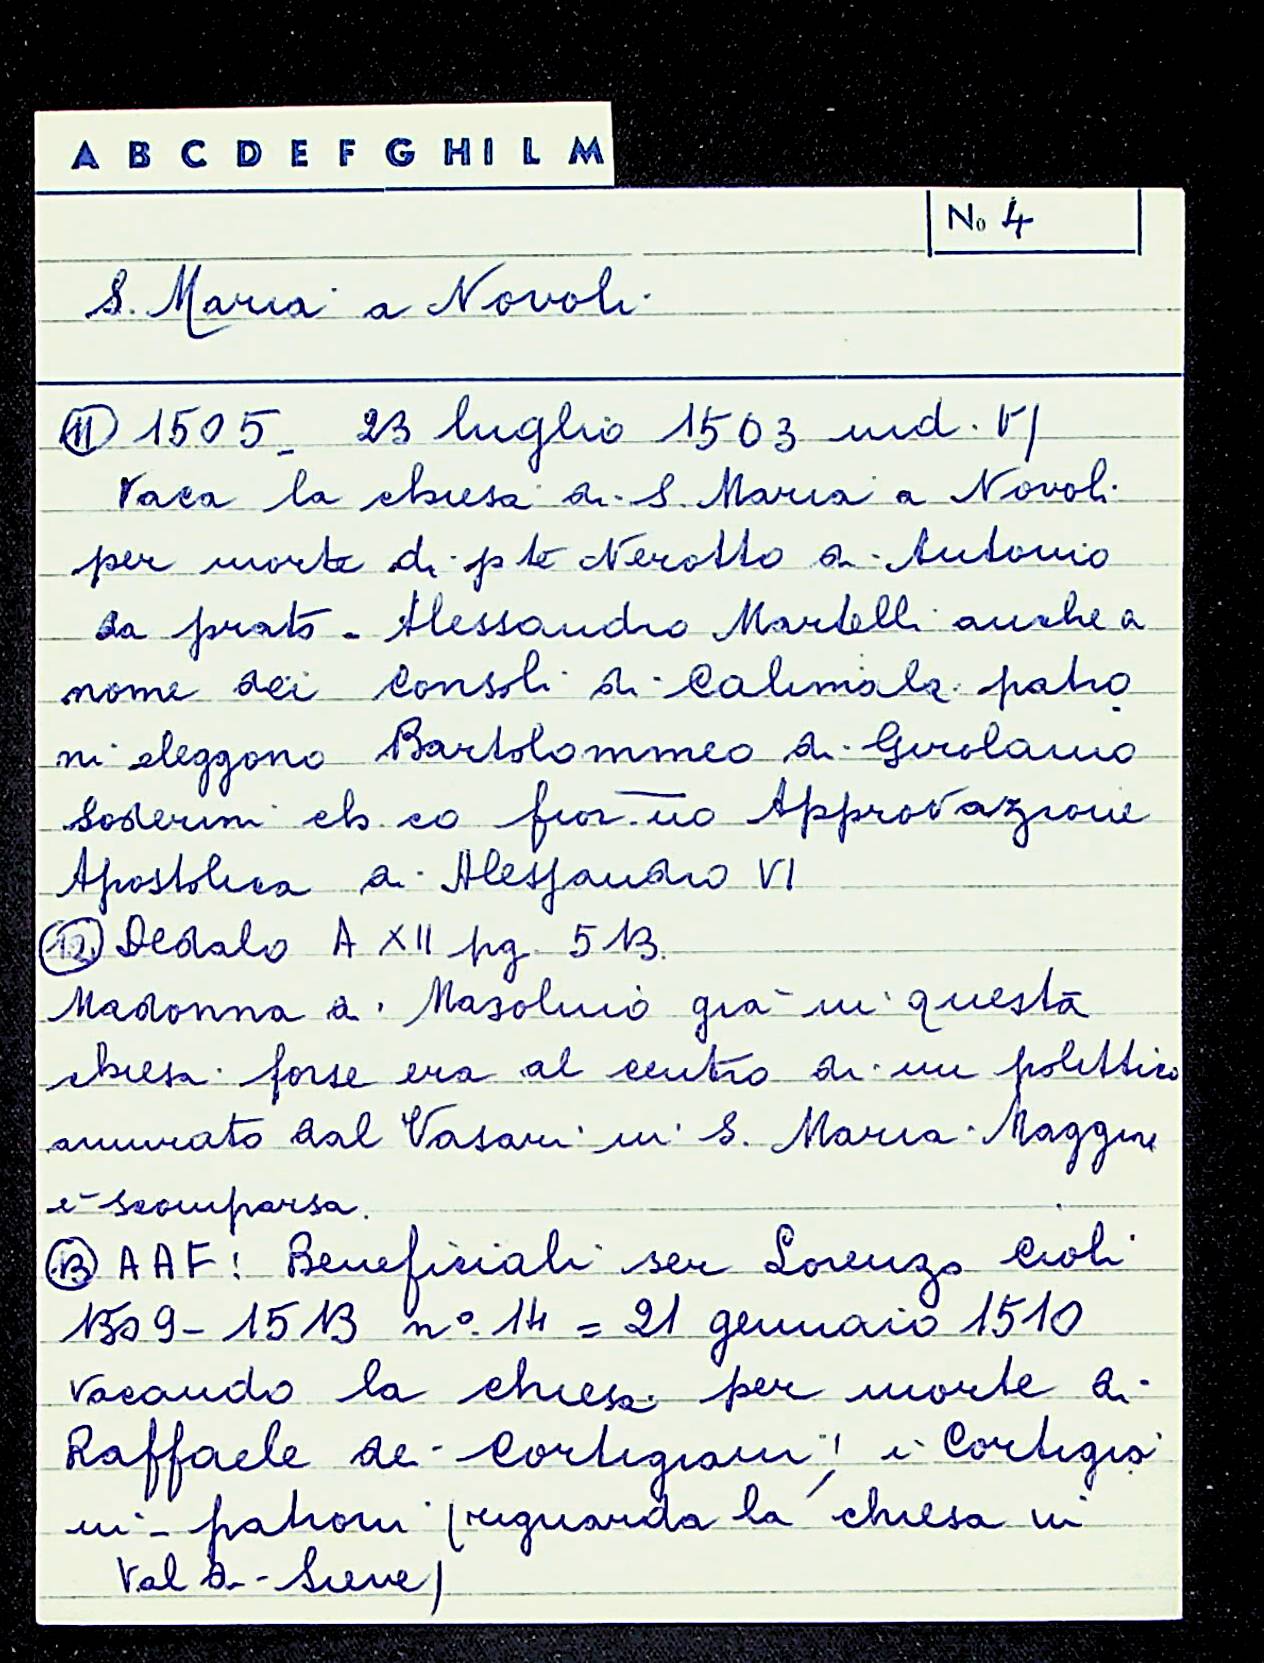 A B C D E F G H I L M
No 4
S. Maria a Novoli
11) 1505_ 23 luglio 1503 ind. VI
Vaca la chiesa di S. Maria a Novoli
per morte di pte Nerotto di Antonio
da prato - Alessandro Martelli anche a
nome dei Consoli di Calimala patro
ni eleggono Bartolommeo di Girolamo
Soderini ch.co fior.no Approvazione
Apostolica di Alessandro VI
12) Dedalo A XII pg. 513.
Madonna di Masolino già in questa
chiesa forse era al centro di un polittico
ammirato dal Vasari in S. Maria Maggiore
e scomparsa.
13) AAF: Beneficiali ser Lorenzo Cioli
1509-1513 n°. 14 = 21 gennaio 1510
vacando la chiesa per morte di
Raffaele de Cortigiani i Cortigia
ni - patroni (riguarda la chiesa in
Val di Sieve)